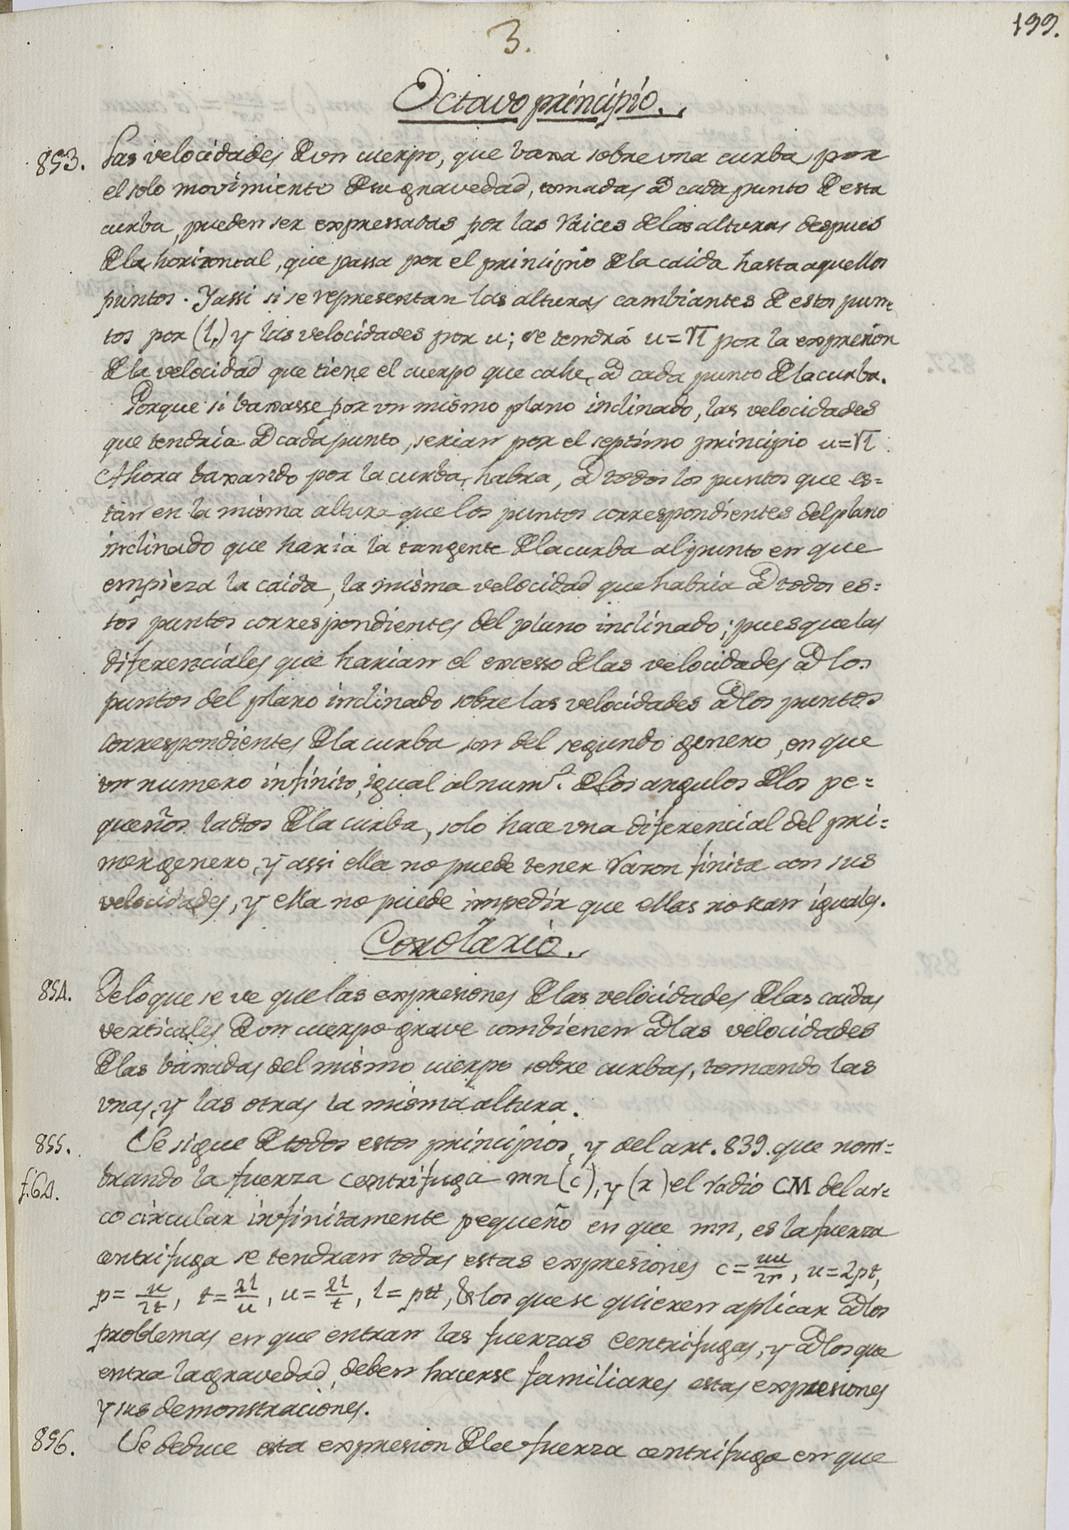 3.
199.
Octavo principio.
853. Las velocidades de un cuerpo, que baxa sobre una curba, por
el solo movimiento de su gravedad, tomadas a cada punto de esta
curba, pueden ser expressadas por las raices de las alturas después
de la horizontal, que passa por el principio de la caida hasta aquellos
puntos. Y assi si se representan las alturas cambiantes de estos pun-
tos por (l,) y las velocidades por u; se tendrá u=√l por la expresion
de la velocidad que tiene el cuerpo que cahe, a cada punto de la curba.
Porque si baxasse por un mismo plano inclinado, las velocidades
que tendria a cada punto, serian por el septimo principio u=√l.
Ahora baxando por la curba, habra, a todos los puntos que es=
tan en la misma altura que los puntos correspondientes del plano
inclinado que haria la tangente de la curba al punto en que
empieza la caida, la misma velocidad que habria a todos es=
tos puntos correspondientes del plano inclinado; pues que las
diferenciales que harian el excesso de las velocidades a los
puntos del plano inclinado sobre las velocidades a los puntos
correspondientes de la curba son del segundo genero, en que
un numero infinito, igual al num.º de los angulos de los pe=
queños lados de la curba, solo hace una diferencial del pri=
mer genero, y assi ella no puede tener razon finita con sus
velocidades, y ella no puede impedir que ellas no sean iguales.
Corolario.
854. De lo que se ve que las expresiones de las velocidades de las caidas
verticales de un cuerpo grave combienen a las velocidades
de las baxadas del mismo cuerpo sobre curbas, tomando las
unas, y las otras la misma altura.
855. Se sigue de todos estos principios, y del art. 839. que nom=
f.64. brando la fuerza centrifuga mn (c), y (r) el radio CM del ar-
co circular infinitamente pequeño en que mn, es la fuerza
centrifuga se tendran todas estas expresiones c=uu/2r, u=2pt,
p=u/2t, t=2l/u, u=2l/t, l=ptt, & los que se quieren aplicar a los
problemas en que entran las fuerzas centrifugas, y a los que
entra la gravedad, deben hacerse familiares estas expresiones
y sus demonstraciones.
856. Se deduce esta expresion de la fuerza centrifuga en que